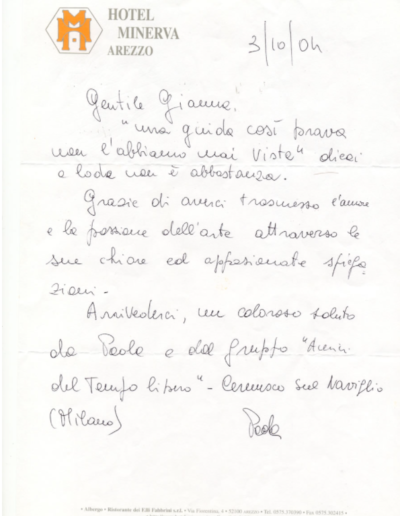 HOTEL
MINERVA
AREZZO
3/10/04
Gentile Gianna,
"una guida così brava
non l'abbiamo mai vista" dieci
e lode non è abbastanza.
Grazie di averci trasmesso l'amore
e la passione dell'arte attraverso le
sue chiare ed appassionate spiega
zioni.
Arrivederci, un caloroso saluto
da Paola e dal gruppo "Amici
del Tempo libero" - Cernusco sul Naviglio
(Milano) Paola
• Albergo • Ristorante dei F.lli Fabbrini s.r.l. • Via Fiorentina,